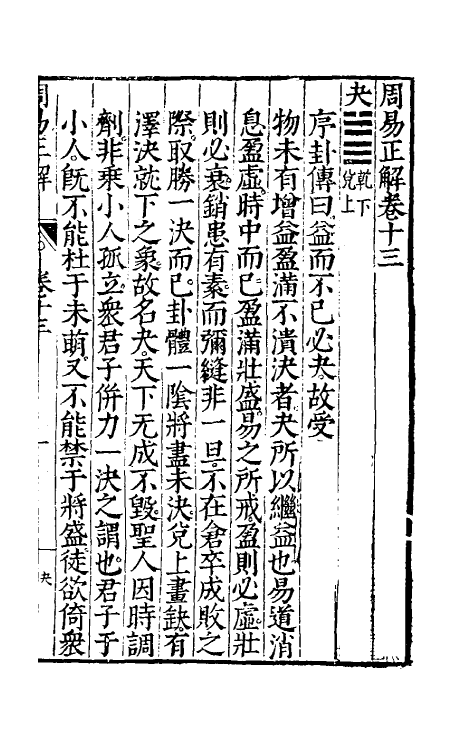 周易正解卷十三
夬 乾下兌上
序卦傳曰益而不已必夬故受
物未有增益盈滿不潰決者夬所以繼益也易道消
息盈虛時中而已盈滿壯盛易之所戒盈則必虛壯
則必衰銷患有素而彌縫非一旦不在倉卒成敗之
際取勝一決而已卦體一陰將盡未決兌上畫缺有
澤決就下之象故名夬天下无成不毀聖人因時調
劑非乘小人孤立衆君子併力一決之謂也君子于
小人旣不能杜于未萌又不能禁于將盛徒欲倚衆
周易正解 卷十三 一 夬